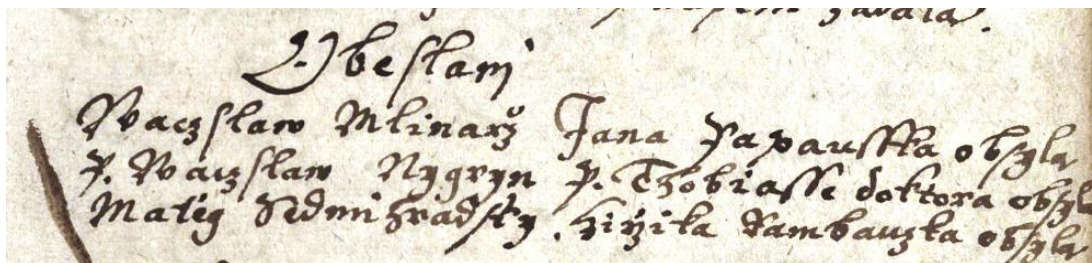 Obeslani
Waczslaw Mlinarz Jana Papausska obsyla
P. Waczslaw Nygryn P. Thobiasse doktora obsy
Matieg Sedmihradsky Jiržika Rambauzka obsyla